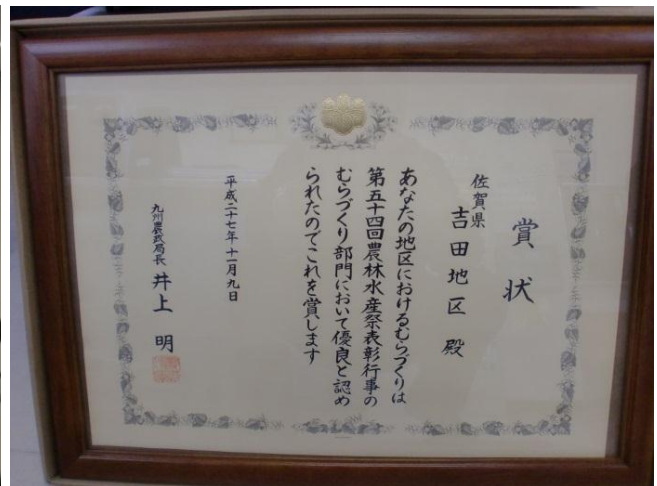 賞状
佐賀県
吉田地区 殿
あなたの地区におけるむらづくりは
第五十四回農林水産祭表彰行事の
むらづくり部門において優良と認め
られたのでこれを賞します
平成二十七年十一月九日
九州農政局長 井上 明